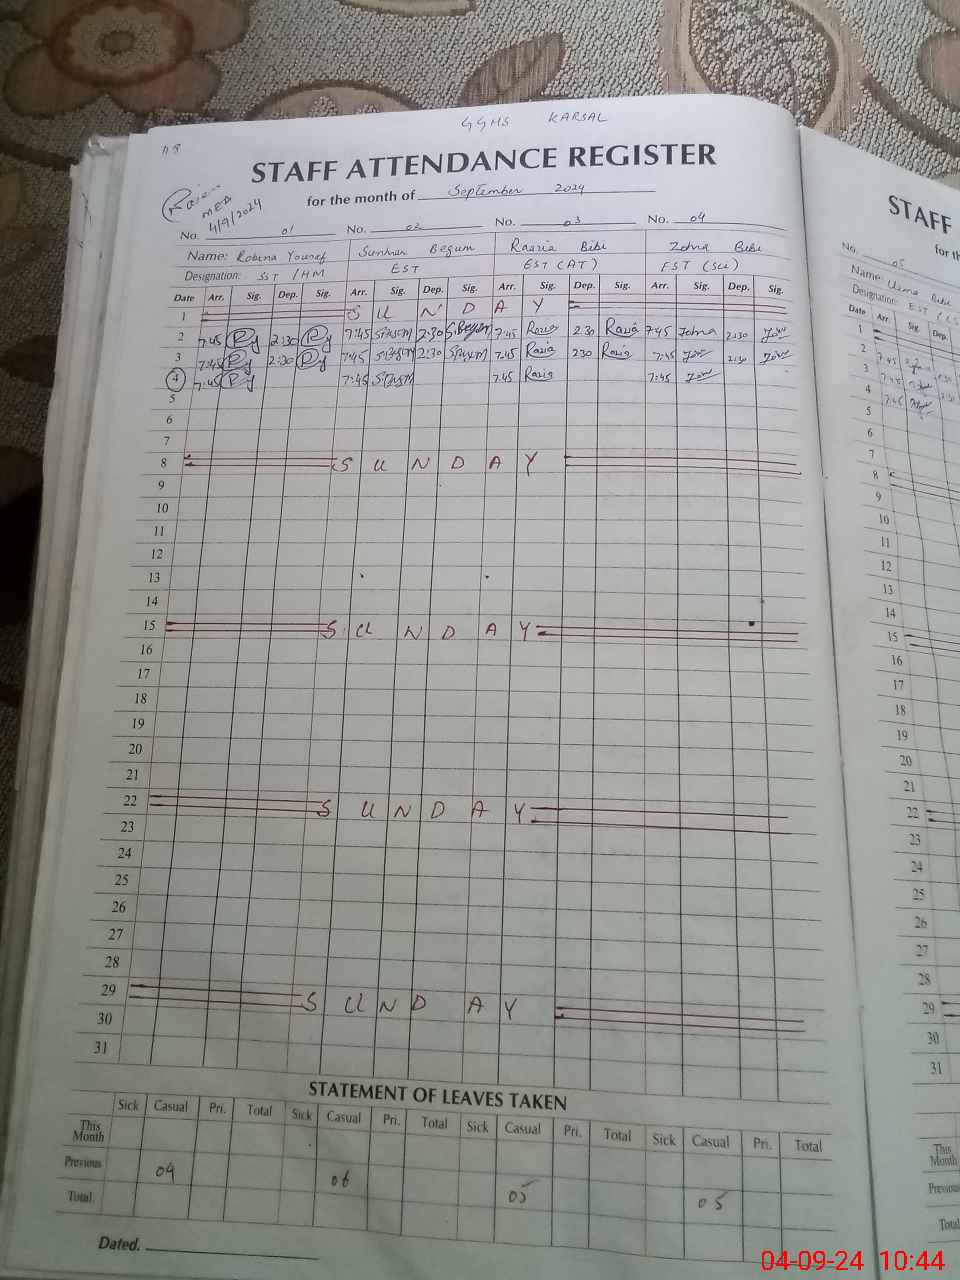 GGMS KARSAL
STAFF ATTENDANCE REGISTER
for the month of September 2024
MED
4/9/2024
No. 01 No. 02 No. 03 No. 04
Name: Robina Yousaf Begum Razia Bibi Zohra Bibi
Designation: SST / HM EST EST (AT) EST (Sci)
Date Arr. Sig. Dep. Sig. Arr. Sig. Dep. Sig. Arr. Sig. Dep. Sig. Arr. Sig. Dep. Sig.
1 SUNDAY
2 7:45 Ry 2:30 Ry 7:45 S.Begum 2:30 S.Begum 7:45 Razia 2:30 Razia 7:45 Zohra 2:30
3 7:45 Ry 2:30 Ry 7:45 S.Begum 2:30 S.Begum 7:45 Razia 2:30 Razia 7:45 2:30
4 7:45 Ry 7:45 S.Begum 7:45 Razia 7:45
5
6
7
8 SUNDAY
9
10
11
12
13
14
15 SUNDAY
16
17
18
19
20
21
22 SUNDAY
23
24
25
26
27
28
29 SUNDAY
30
31
STATEMENT OF LEAVES TAKEN
Sick Casual Pri. Total Sick Casual Pri. Total Sick Casual Pri. Total Sick Casual Pri. Total
This Month
Previous 09 06 05 05
Total
Dated.
STAFF
No. 05
for th
Name: Bibi
Designation: EST
Date Arr. Sig. Dep.
1
2 7:45
3 7:45
4 7:45
5
6
7
8
9
10
11
12
13
14
15
16
17
18
19
20
21
22
23
24
25
26
27
28
29
30
31
This Month
Previous
Total
04-09-24 10:44